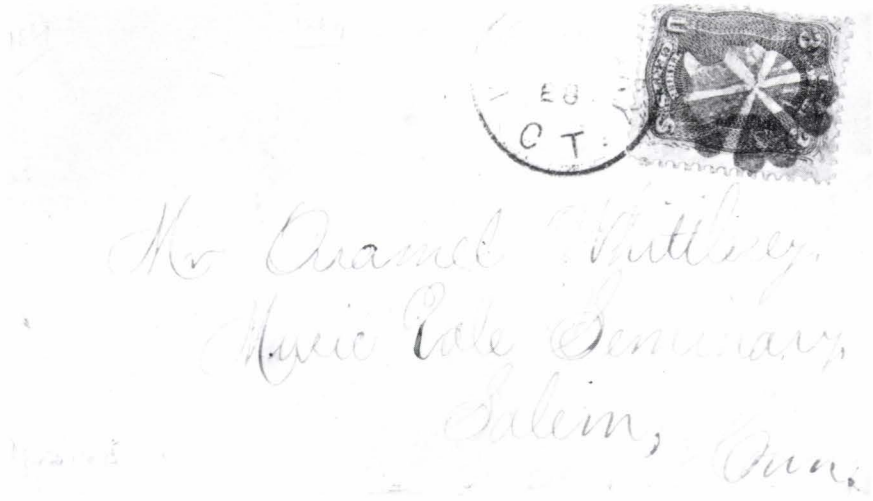 EB
CT.
U S 3
Mr Oramel Whittlesey.
Music Vale Seminary,
Salem,
Conn.